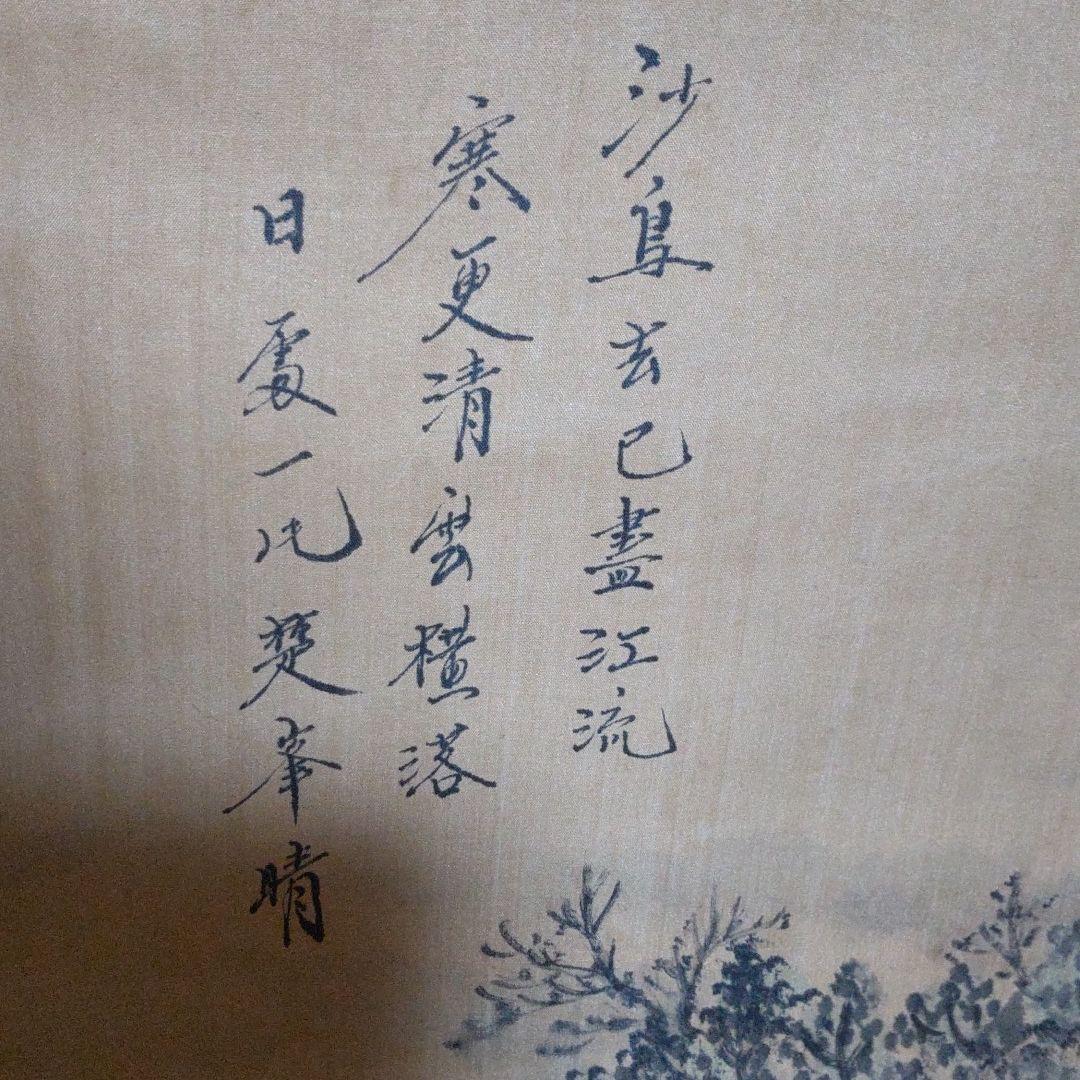 沙鳥去已盡江流
寒更清雲橫落
日處一片楚峯晴